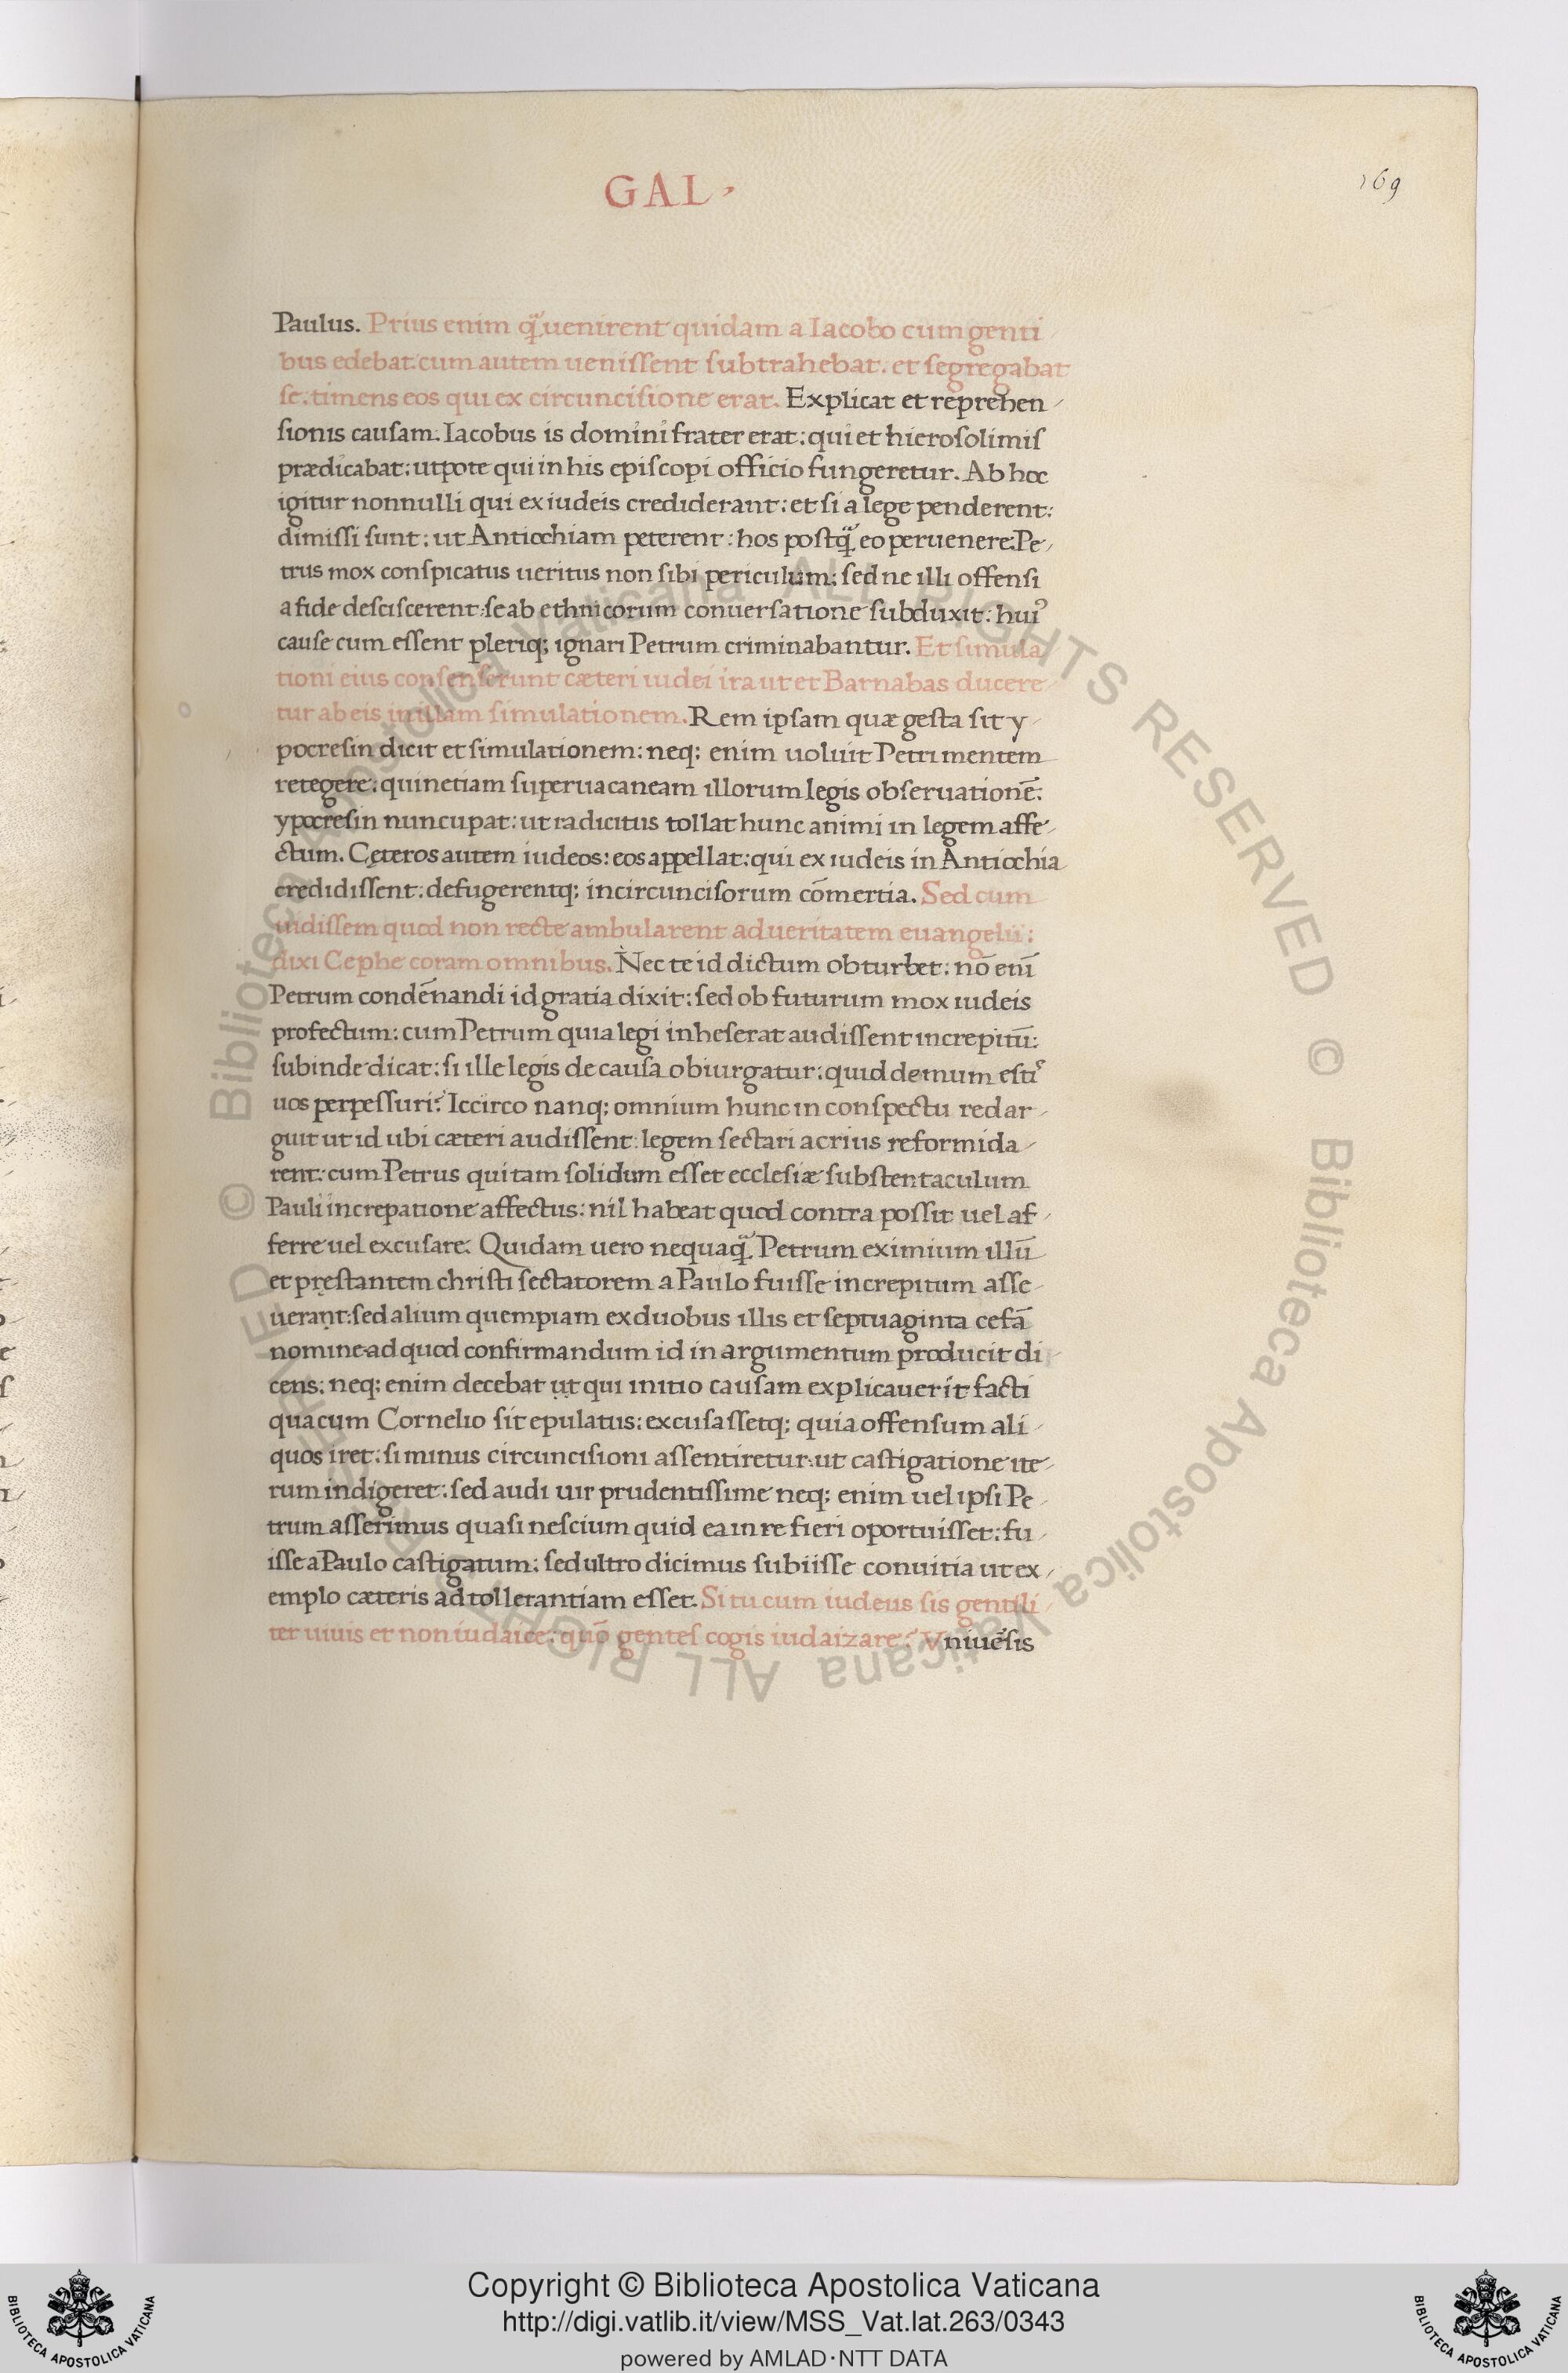 GAL,
169
Paulus. Prius enim qᷓ uenirent quidam a Iacobo cum genti
bus edebat: cum autem uenissent subtrahebat. et segregabat
se. timens eos qui ex circuncisione erat. Explicat et reprehen
sionis causam. Iacobus is domini frater erat: qui et hierosolimis
prædicabat: utpote qui in his episcopi officio fungeretur. Ab hoc
igitur nonnulli qui ex iudeis crediderant: et si a lege penderent:
dimissi sunt: ut Antiochiam peterent: hos postqᷓ eo peruenere: Pe
trus mox conspicatus ueritus non sibi periculum: sed ne illi offensi
a fide desciscerent: se ab ethnicorum conuersatione subduxit: huiꝰ
cause cum essent pleriq; ignari Petrum criminabantur. Et simula
tioni eius consenserunt cæteri iudei ita ut et Barnabas ducere
tur ab eis in illam simulationem. Rem ipsam quæ gesta sit y
pocresin dicit et simulationem: neq; enim uoluit Petri mentem
retegere: quinetiam superuacaneam illorum legis obseruationē:
ypocresin nuncupat: ut radicitus tollat hunc animi in legem affe
ctum. Cęteros autem iudeos: eos appellat: qui ex iudeis in Antiochia
credidissent: defugerentq; incircuncisorum cōmertia. Sed cum
uidissem quod non recte ambularent ad ueritatem euangelii:
dixi Cephe coram omnibus. Nec te id dictum obturbet: nō enī
Petrum condēnandi id gratia dixit: sed ob futurum mox iudeis
profectum: cum Petrum quia legi inheserat audissent increpitū:
subinde dicat: si ille legis de causa obiurgatur: quid demum esti᷒
uos perpessuri? Iccirco nanq; omnium hunc in conspectu redar
guit ut id ubi cæteri audissent: legem sectari acrius reformida
rent: cum Petrus qui tam solidum esset ecclesiæ substentaculum
Pauli increpatione affectus: nil habeat quod contra possit uel af
ferre uel excusare. Quidam uero nequaqᷓ Petrum eximium illū
et pręstantem christi sectatorem a Paulo fuisse increpitum asse
uerant: sed alium quempiam ex duobus illis et septuaginta cefā
nomine ad quod confirmandum id in argumentum producit di
cens: neq; enim decebat ut qui initio causam explicauerit facti
qua cum Cornelio sit epulatus: excusassetq; quia offensum ali
quos iret: si minus circuncisioni assentiretur: ut castigatione ite
rum indigeret: sed audi uir prudentissime neq; enim uel ipsi Pe
trum asserimus quasi nescium quid ea in re fieri oportuisset: fu
isse a Paulo castigatum: sed ultro dicimus subiisse conuitia ut ex
emplo cæteris ad tollerantiam esset. Si tu cum iudeus sis gentili
ter uiuis et non iudaice: quō gentes cogis iudaizare? Vniuēsis
© Biblioteca Apostolica Vaticana ALL RIGHTS RESERVED © Biblioteca Apostolica Vaticana ALL RIGHTS RESERVED
Copyright © Biblioteca Apostolica Vaticana
http://digi.vatlib.it/view/MSS_Vat.lat.263/0343
powered by AMLAD·NTT DATA
BIBLIOTECA APOSTOLICA VATICANA
BIBLIOTECA APOSTOLICA VATICANA